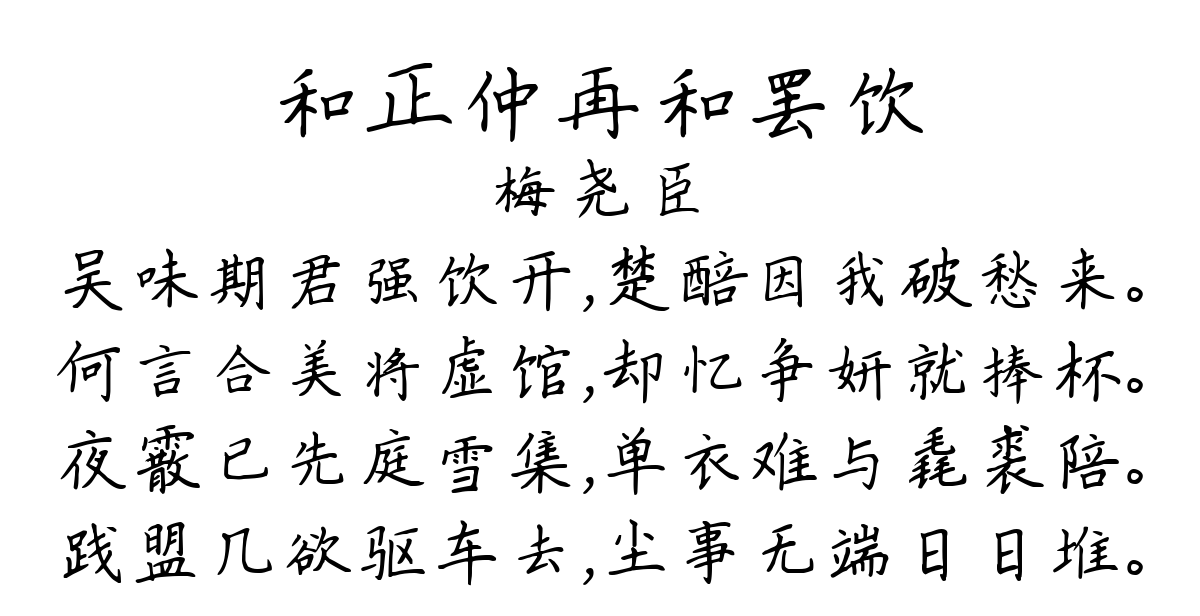 和正仲再和罢饮
梅尧臣
吴味期君强饮开,楚醅因我破愁来。
何言合美将虚馆,却忆争妍就捧杯。
夜霰已先庭雪集,单衣难与毳裘陪。
践盟几欲驱车去,尘事无端日日堆。